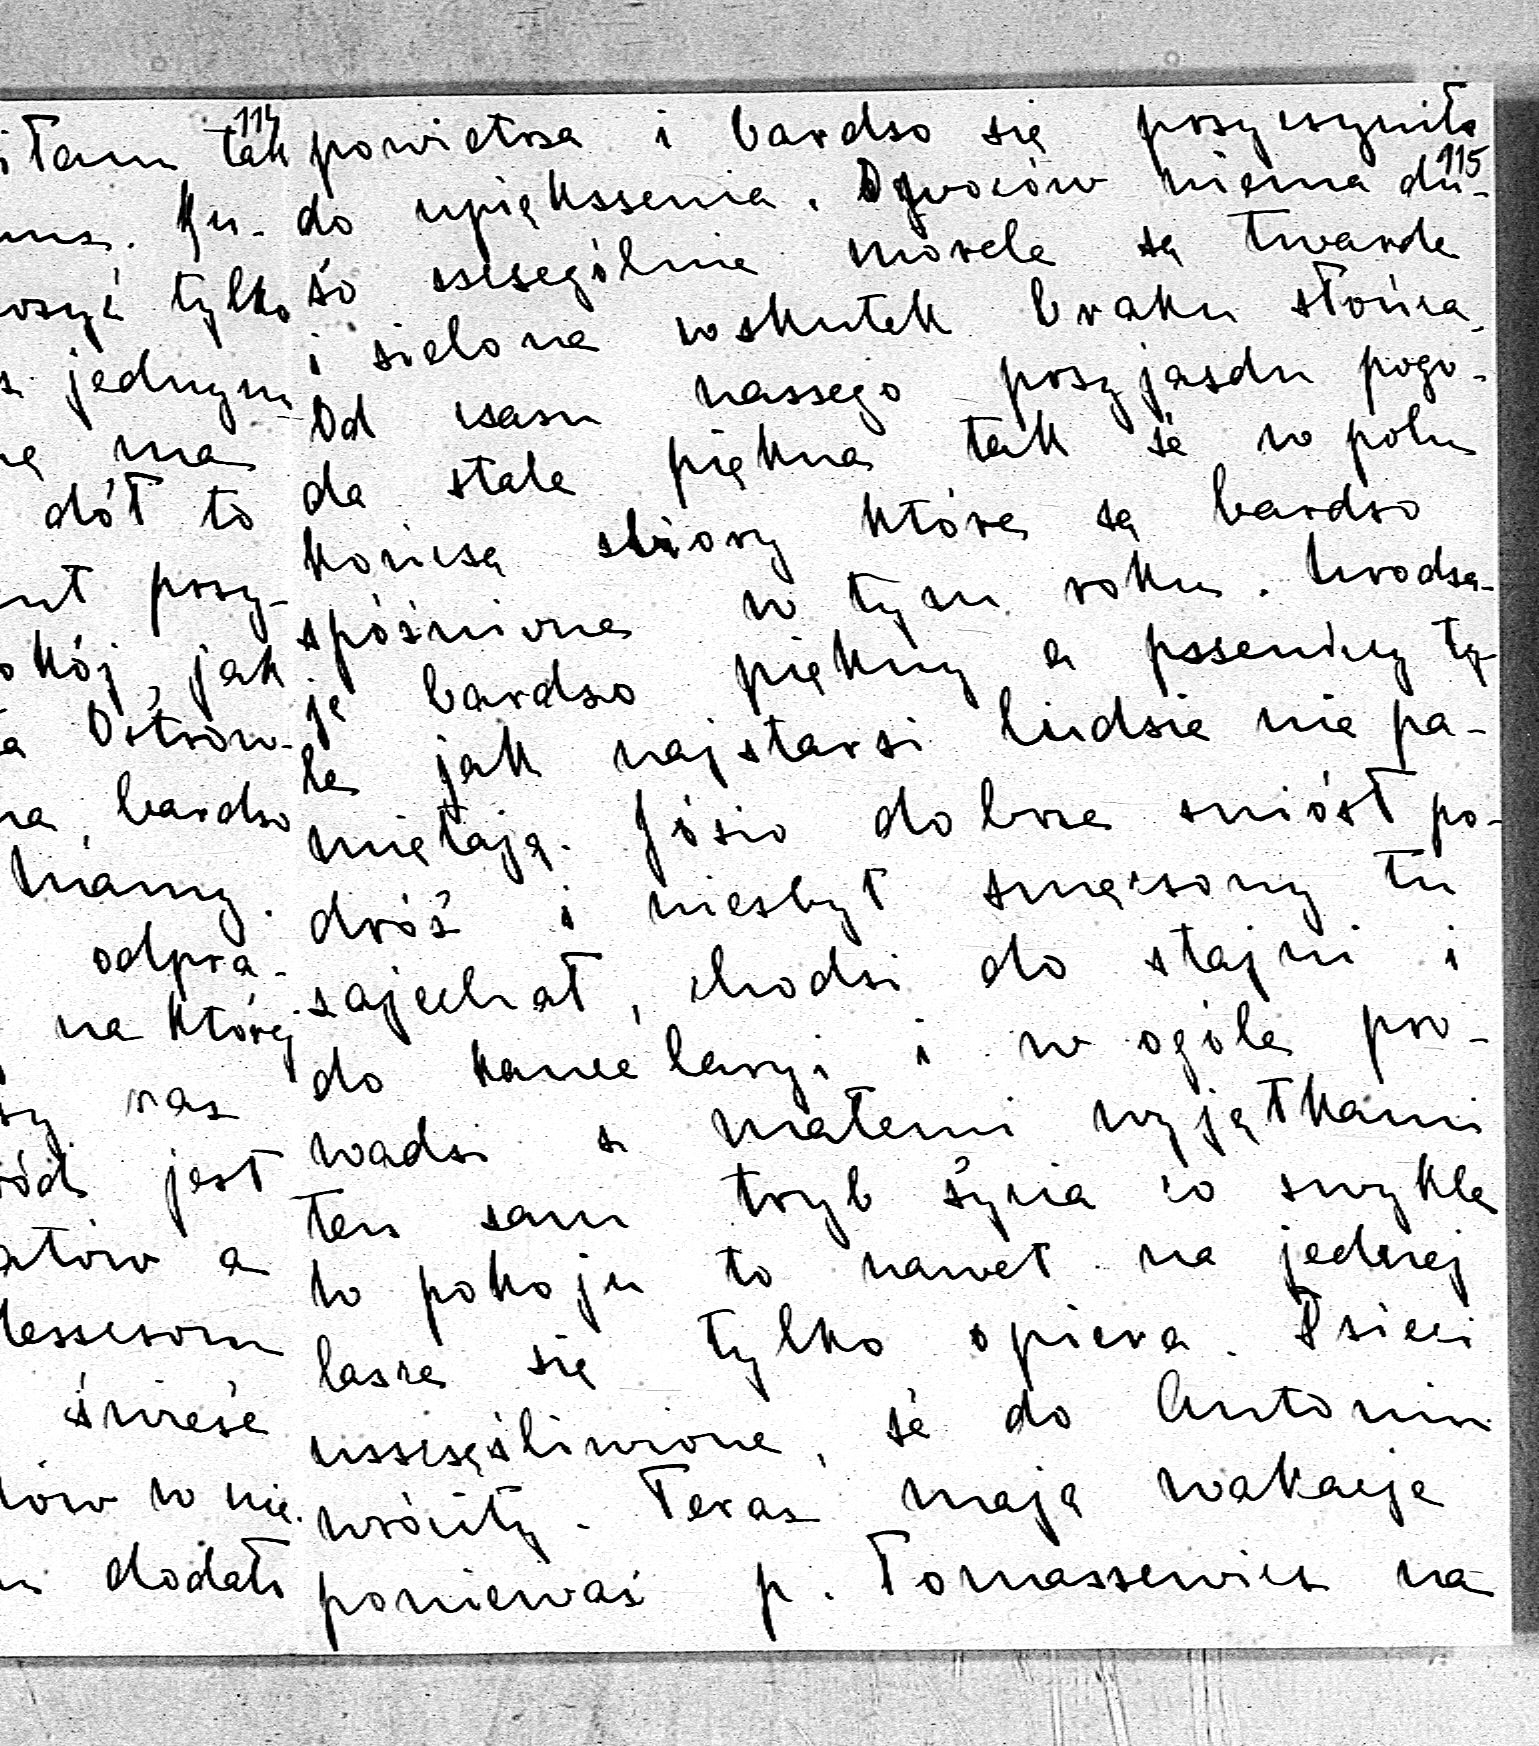 114
iłam tak
Ku-
tylko
z jednym
ną ma
dół to
przy-
okój, jak
Ostrów-
na, bardzo
mamy.
odpra-
na której
raz
jest
atów a
deszczom
świeże
dów w nie.
dodało
115
powietrza i bardzo się przyczyniło
do upiększenia. Owoców niema du-
żo szczególnie morele są twarde
i zielone wskutek braku słońca.
Od czasu naszego przyjazdu pogo-
da stale piękna tak że w polu
kończą zbiory które są bardzo
spóźnione w tym roku. Urodza-
je bardzo piękny a pszenicy ty-
le jak najstarsi ludzie nie pa-
miętają. Józio dobrze zniósł po-
dróż i niezbyt zmęczony tu
zajechał, chodzi do stajni i
do kancelaryi i w ogóle pro-
wadzi z małemi wyjątkami
ten sam tryb życia co zwykle
w pokoju to nawet na jednej
lasce się tylko opiera. Dzieci
uszczęśliwione, że do Antonin
wróciły. Teraz mają wakacje
ponieważ p. Tomaszewicz na